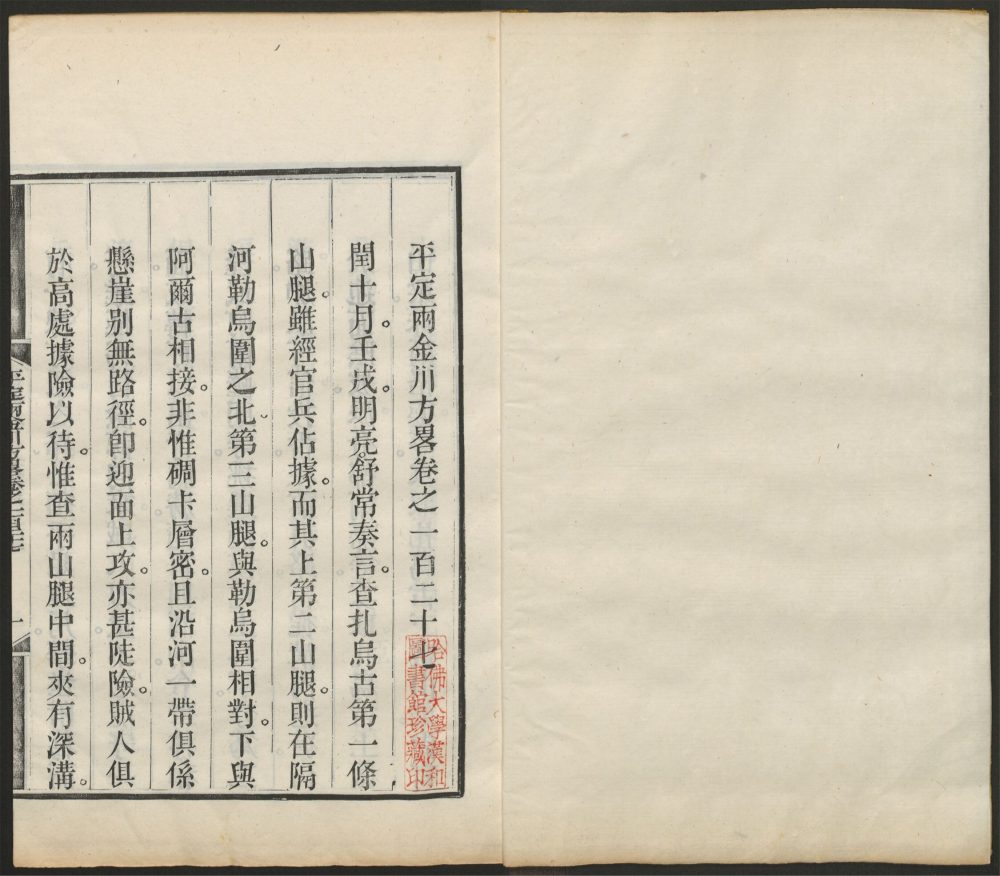 平定兩金川方畧卷之一百二十七
閏十月。壬戌。明亮。舒常奏言。查扎烏古第一條
山腿。雖經官兵佔據。而其上第二山腿。則在隔
河勒烏圍之北。第三山腿。與勒烏圍相對。下與
阿爾古相接。非惟碉卡層密。且沿河一帶俱係
懸崖。别無路徑。卽迎面上攻。亦甚陡險。賊人俱
於高處據險以待。惟查兩山腿中間。夾有深溝。
哈佛大學漢和
圖書館珍藏印
平定兩金川方畧卷之一百二十七
一